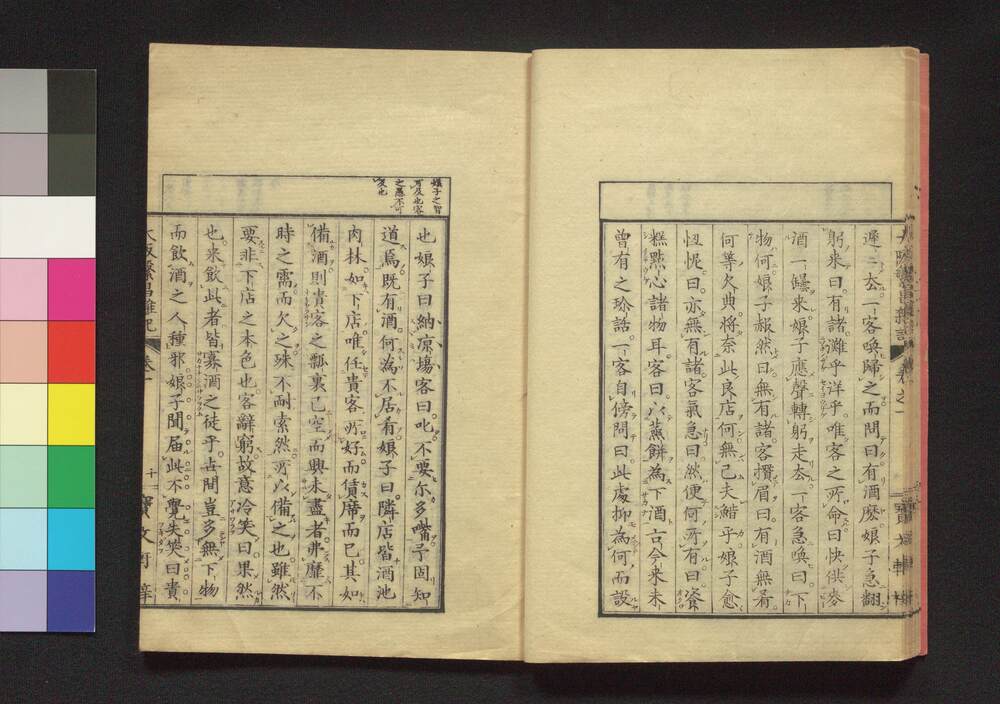 遲々去一客喚歸之而問曰有酒麽娘子急翻
躬来曰有諸灘乎洋乎唯客之所命曰快供麥
酒一鑵来娘子應聲轉躬走去一客急喚曰下
物何娘子赧然曰無有諸客攢眉曰有酒無肴
何等欠典將奈此良店何無已夫鯌乎娘子愈
忸怩曰亦無有諸客氣急曰然便何所有曰瓷
糕點心諸物耳客曰以蒸餅為下酒古今来未
曾有之珍話一客自傍問曰此處抑為何而設
娘子之智
可及也客
之愚不可
及也
也娘子曰納凉塲客曰叱不要尓多嘴子固知
道焉既有酒何為不居肴娘子曰隣店皆酒池
肉林如下店唯任貴客所好而賃席而已其如
備酒則貴客之瓢裏已空而興未盡者弗靡不
時之需而欠之殊不耐索然所以備之也雖然
要非下店之本色也客辭窮故意冷笑曰果然
也来飲此者皆寡酒之徒乎古間豈多無下物
而飲酒之人種邪娘子聞届此不覺失笑曰貴
大阪繁昌雜記 卷一 十一 寶文軒